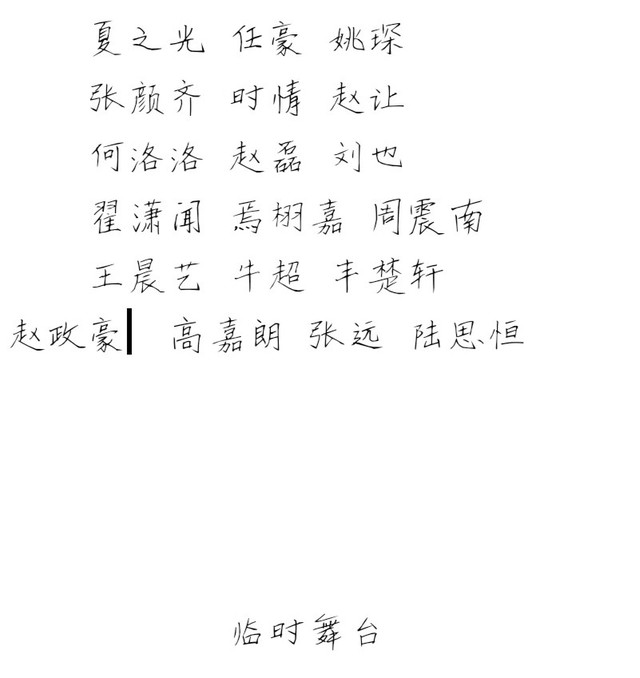 夏之光 任豪 姚琛
张颜齐 时情 赵让
何洛洛 赵磊 刘也
翟潇闻 焉栩嘉 周震南
王晨艺 牛超 丰楚轩
赵政豪 高嘉朗 张远 陆思恒
临时舞台